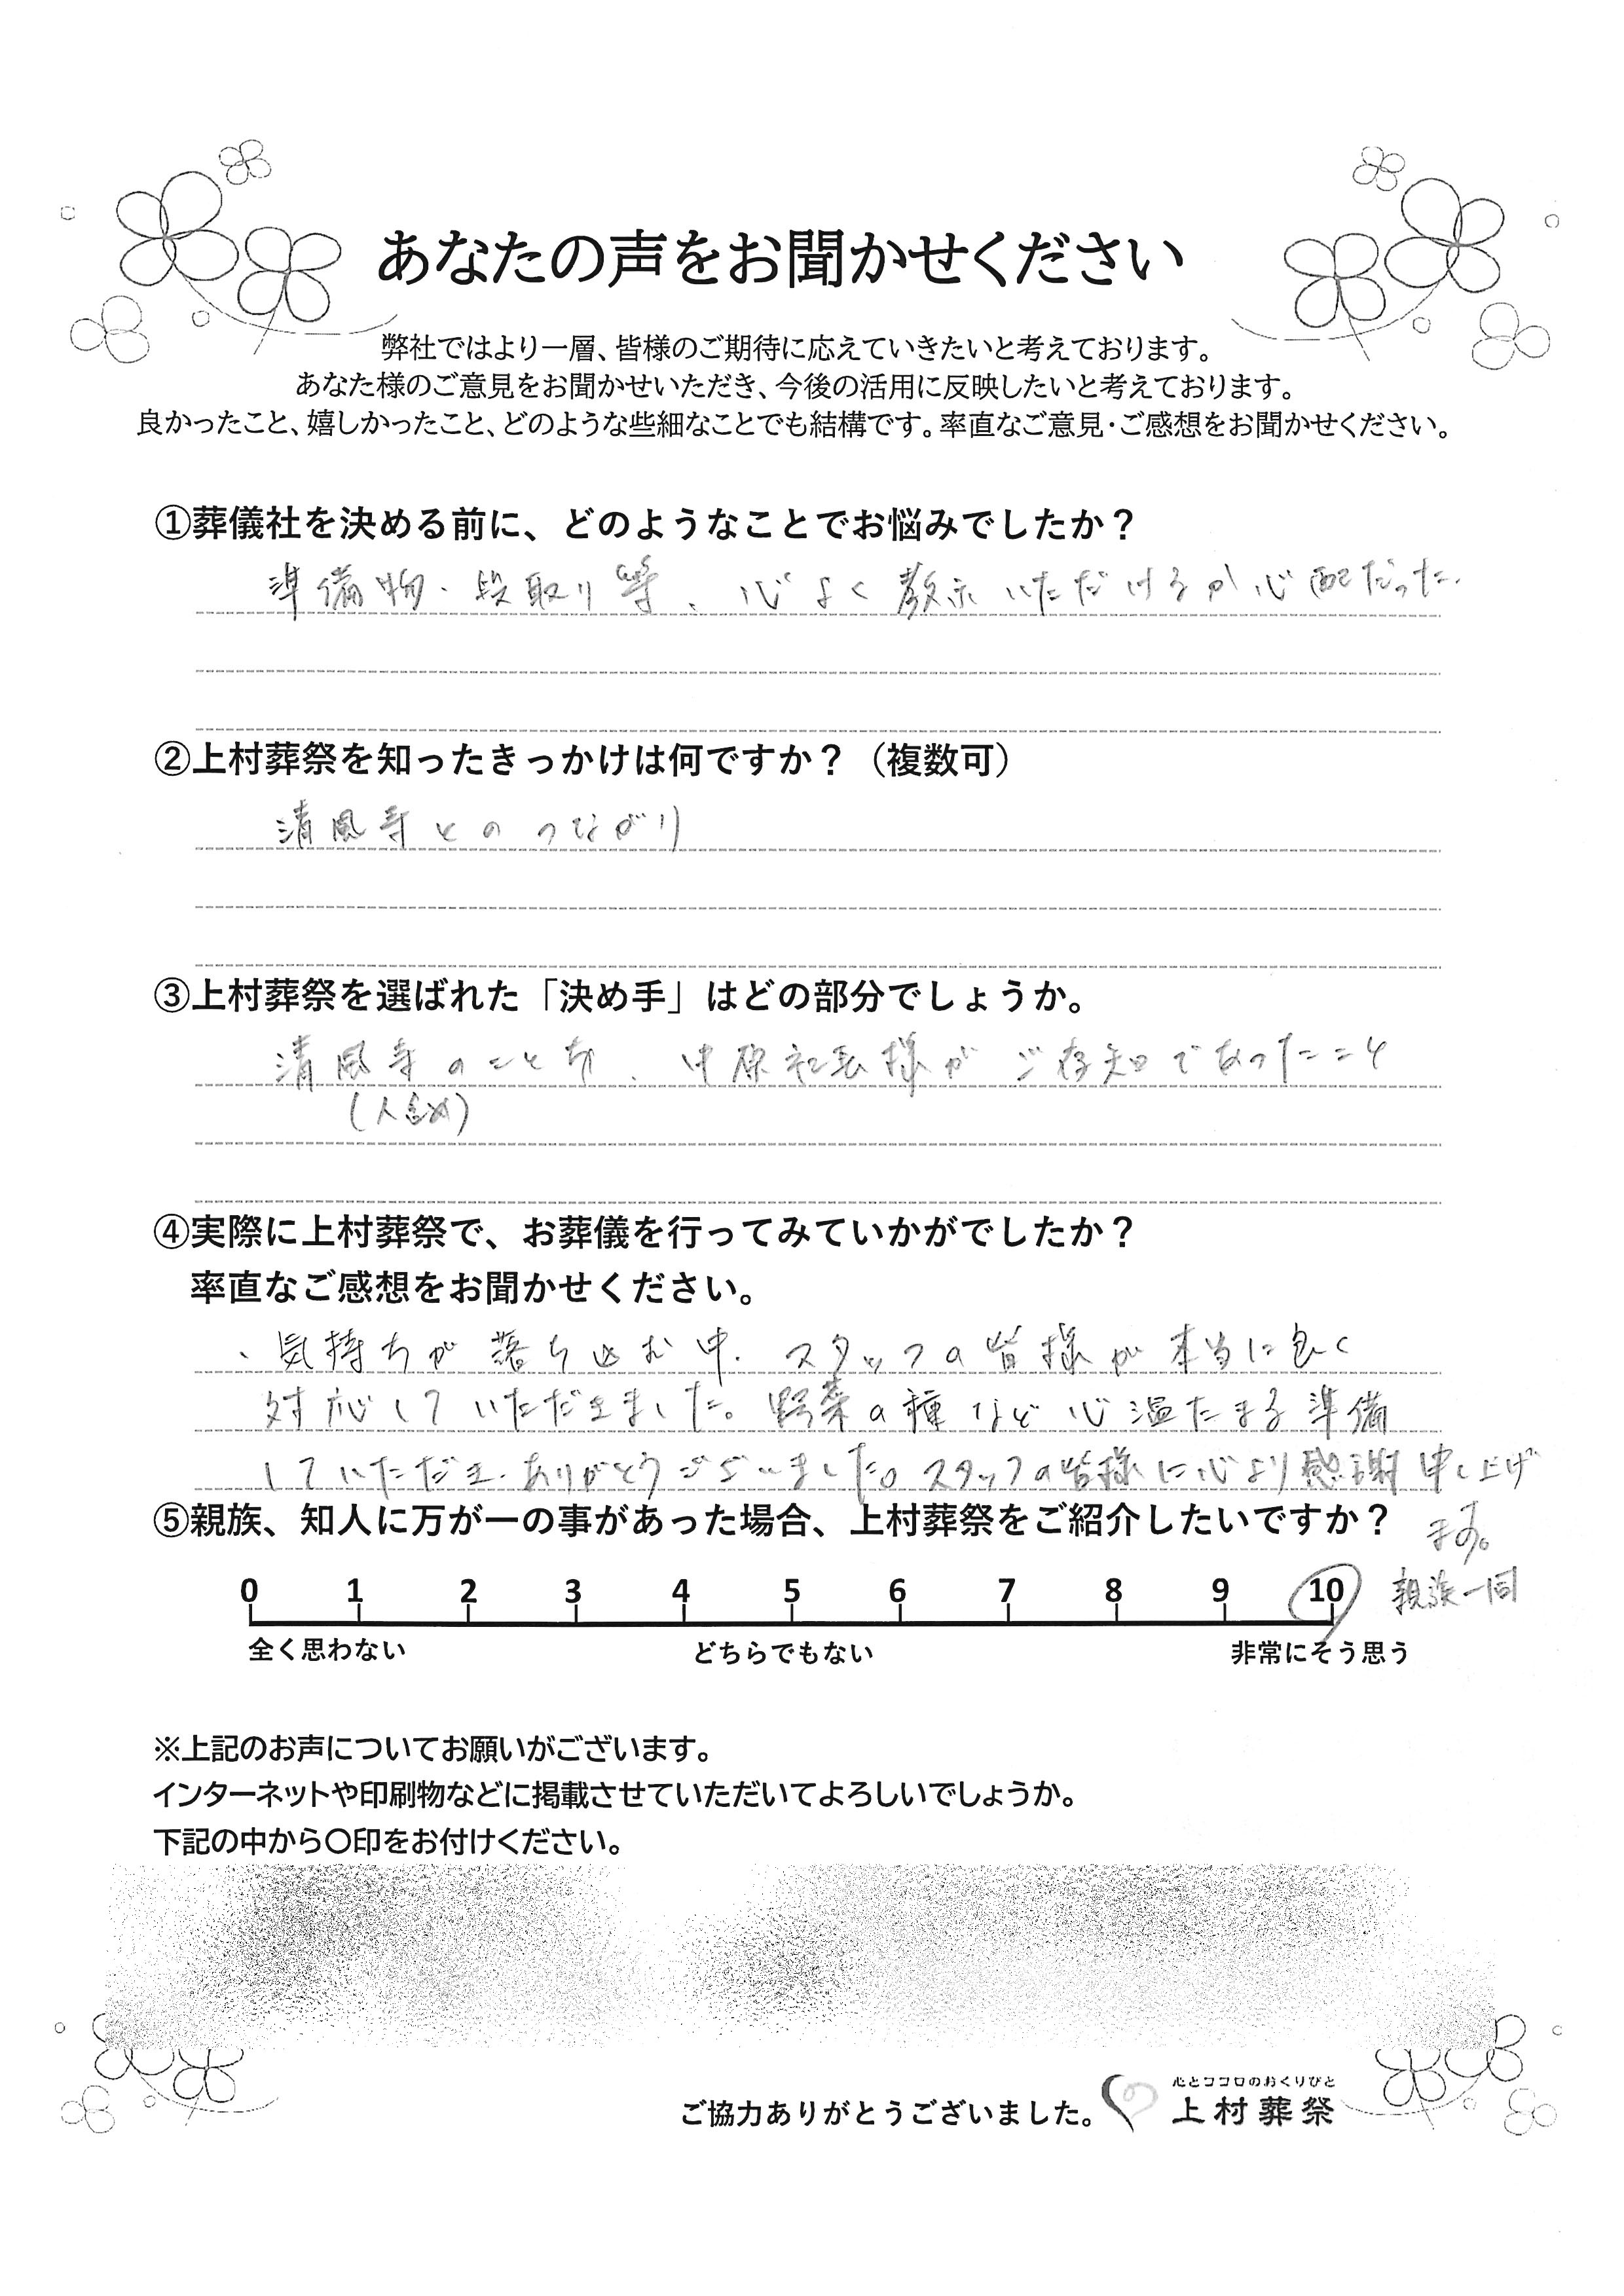 あなたの声をお聞かせください
弊社ではより一層、皆様のご期待に応えていきたいと考えております。
あなた様のご意見をお聞かせいただき、今後の活用に反映したいと考えております。
良かったこと、嬉しかったこと、どのような些細なことでも結構です。率直なご意見・ご感想をお聞かせください。
①葬儀社を決める前に、どのようなことでお悩みでしたか？
準備物・段取り等、心よく教示いただけるか心配だった。
②上村葬祭を知ったきっかけは何ですか？（複数可）
清風寺とのつながり
③上村葬祭を選ばれた「決め手」はどの部分でしょうか。
清風寺のことを、中原社長様がご存知であったこと
(人含め)
④実際に上村葬祭で、お葬儀を行ってみていかがでしたか？
率直なご感想をお聞かせください。
、気持ちが落ち込む中、スタッフの皆様が本当に良く
対応していただきました。野菜の種など心温たまる準備
していただき、ありがとうございました。スタッフの皆様に心より感謝申し上げ
ます。
⑤親族、知人に万が一の事があった場合、上村葬祭をご紹介したいですか？
親族一同
0 1 2 3 4 5 6 7 8 9 10
全く思わない どちらでもない 非常にそう思う
※上記のお声についてお願いがございます。
インターネットや印刷物などに掲載させていただいてよろしいでしょうか。
下記の中から〇印をお付けください。
心とココロのおくりびと
ご協力ありがとうございました。 上村葬祭